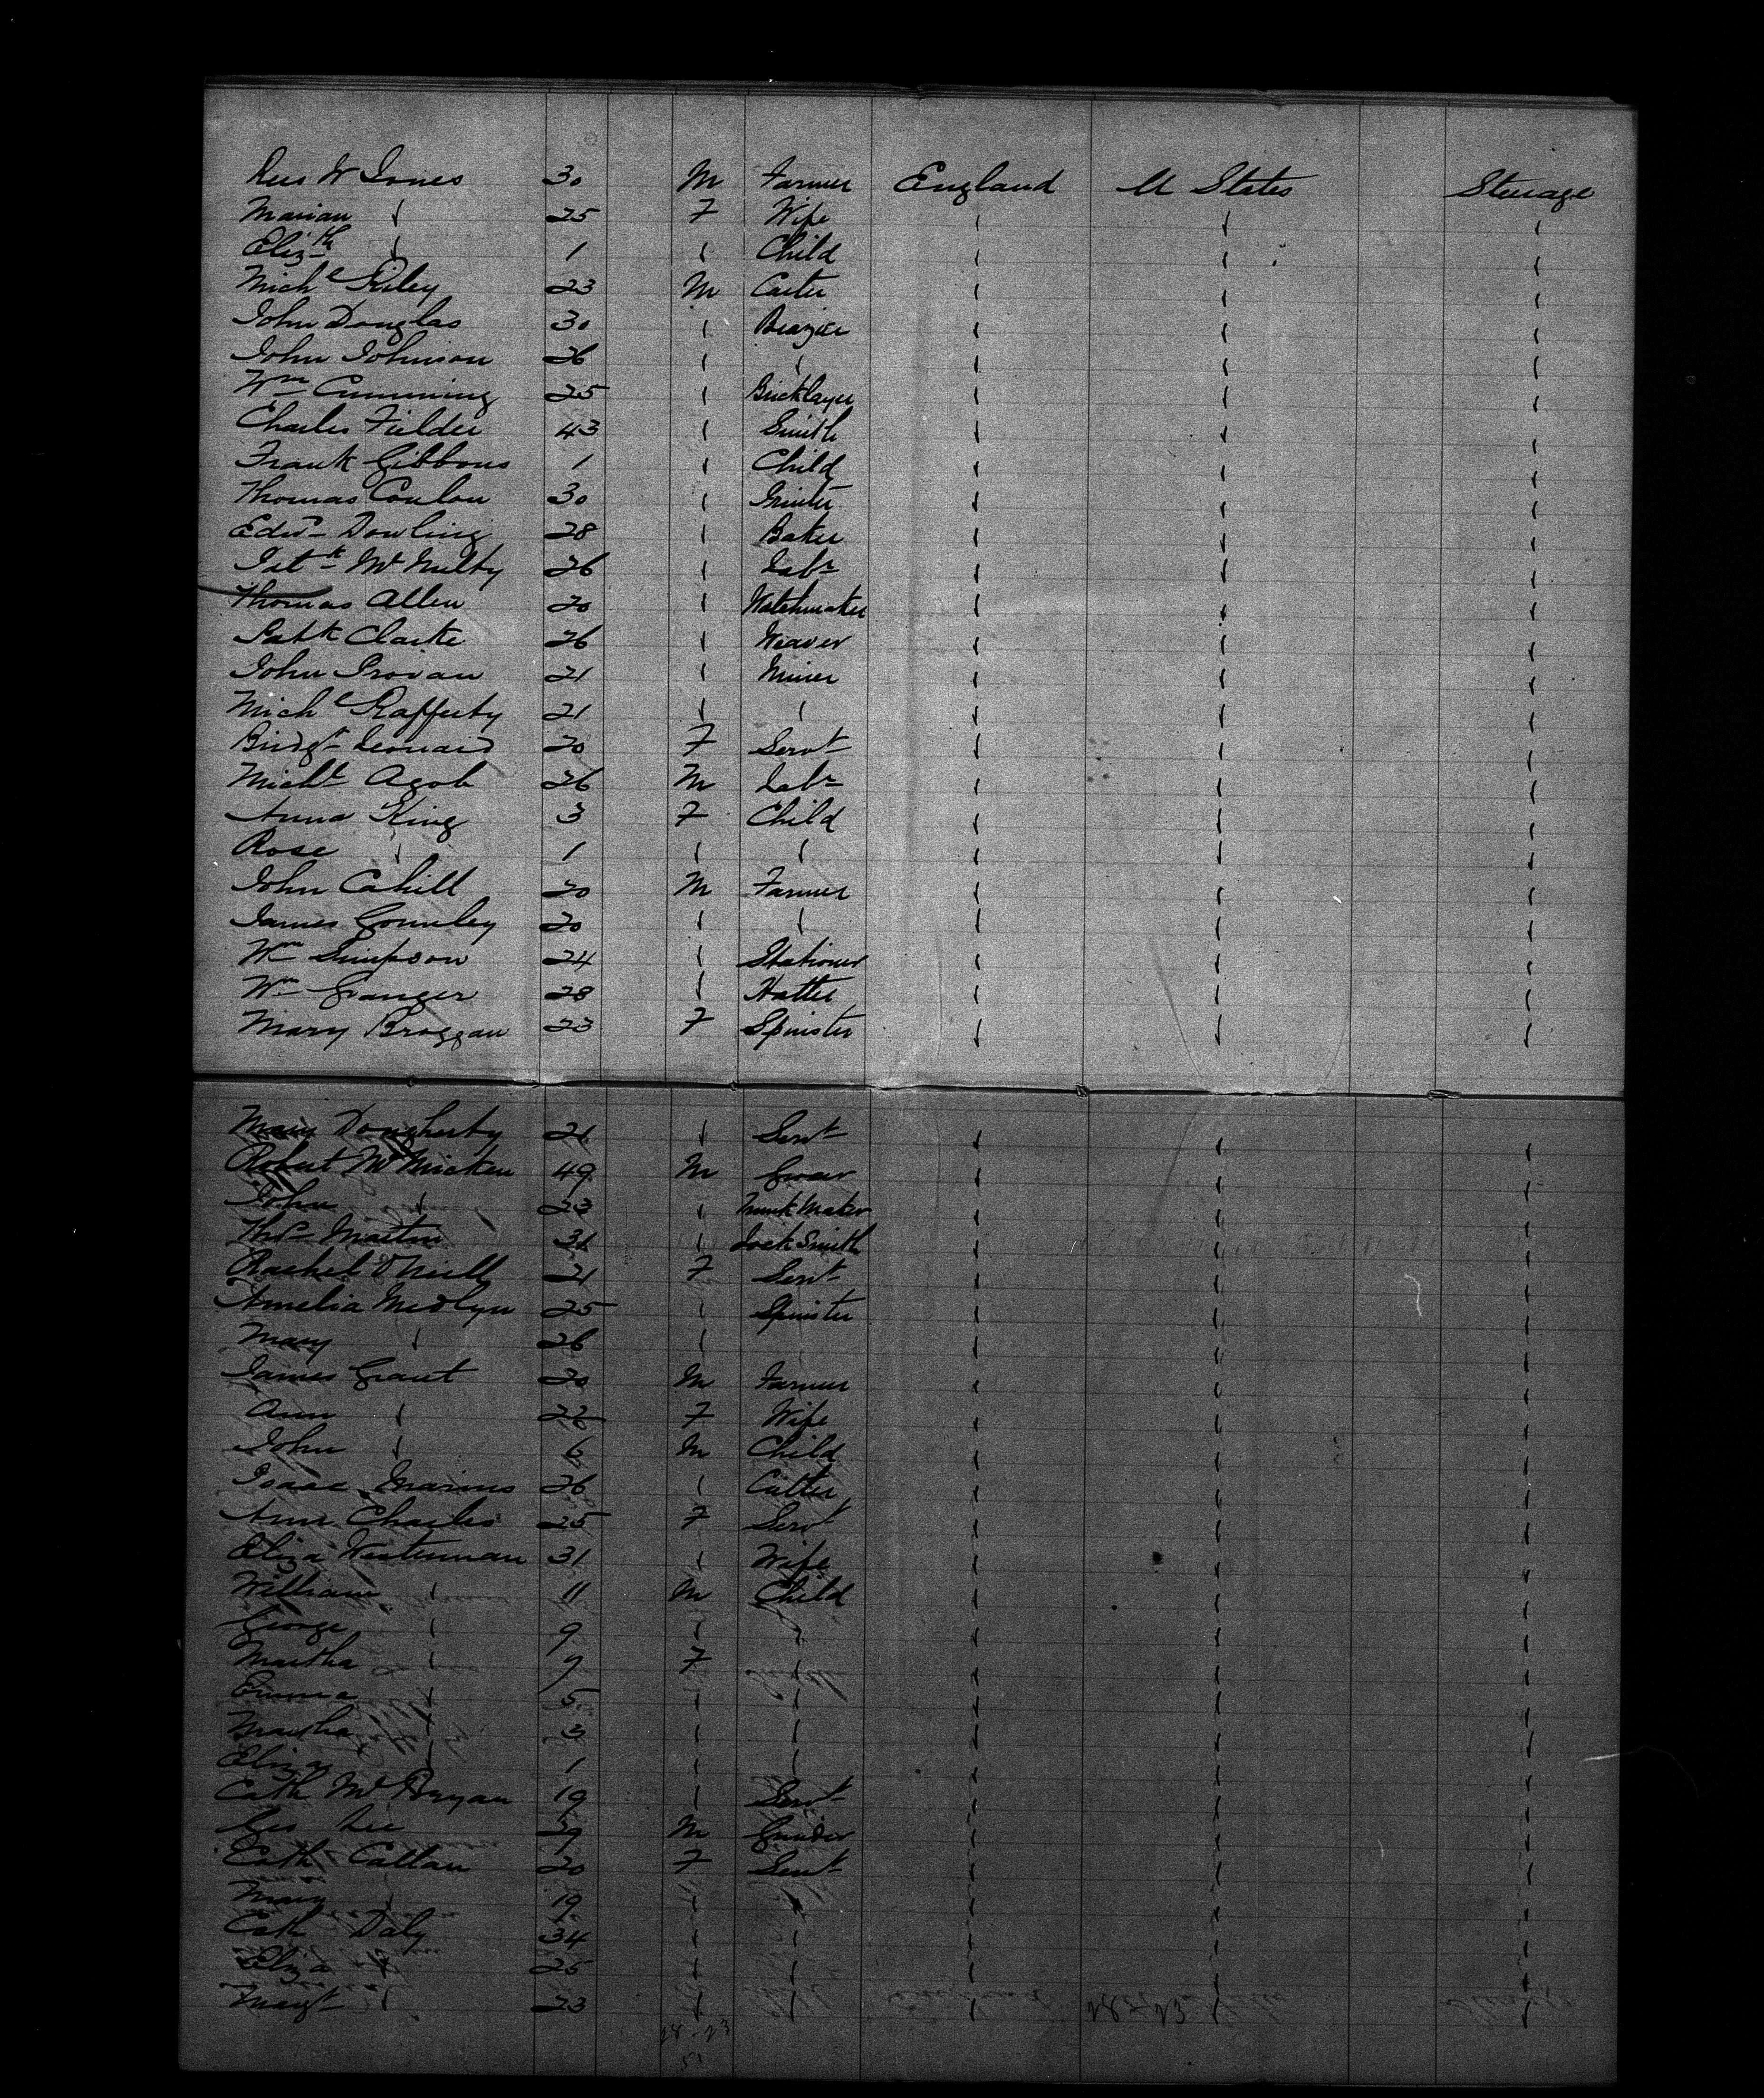 Rees W Jones 30 M Farmer England U States Steerage
Marian " 25 F Wife " " "
Eliz-th " 1 " Child " " "
Michl Riley 23 M Carter " " "
John Douglas 30 " Brazier " " "
John Johnson 26 " " " " "
Wm Cumming 25 " Bricklayer " " "
Charles Fielder 43 " Smith " " "
Frank Gibbons 1 " Child " " "
Thomas Conlon 30 " " " "
Edwd Dowling 28 " Baker " " "
Patk McNulty 26 " Labr " " "
Thomas Allen 20 " Watchmaker " " "
Patk Clarke 26 " Weaver " " "
John Provan 21 " Miner " " "
Michl Rafferty 21 " " " " "
Bridgt Leonard 20 F Servt " " "
Michl Agob 26 M Labr " " "
Anna King 3 F Child " " "
Rose " 1 " " " " "
John Cahill 20 M Farmer " " "
James Gormley 20 " " " " "
Wm Simpson 24 " Stationer " " "
Wm Granger 28 " Hatter " " "
Mary Broggan 23 F Spinster " " "
Mary Dougherty 21 " Servt " " "
Robert McMicken 49 M Grocer " " "
John " 23 " Trunk Maker " " "
Thos Martin 31 " Lock Smith " " "
Rachel O'Neill 21 F Servt " " "
Amelia Medlyn 25 " Spinster " " "
Mary " 26 " " " "
James Grant 20 M Farmer " " "
Ann " 22 F Wife " " "
John " 6 M Child " " "
Isaac Marins 26 " Cutter " " "
Ann Charles 25 F Servt " " "
Eliza Westerman 31 " Wife " " "
William " 11 M Child " " "
George " 9 " " " " "
Martha " 7 F " " " "
Emma " 5 " " " " "
Martha " 3 " " " " "
Eliza " 1 " " " " "
Cath McBryan 19 " Servt " " "
Geo Lee 29 M Grinder " " "
Cath Callan 20 F Servt " " "
Mary " 19 " " " " "
Cath Daly 34 " " " " "
Eliza " 25 " " " " "
Margt " 23 " " " " "
28-23
51